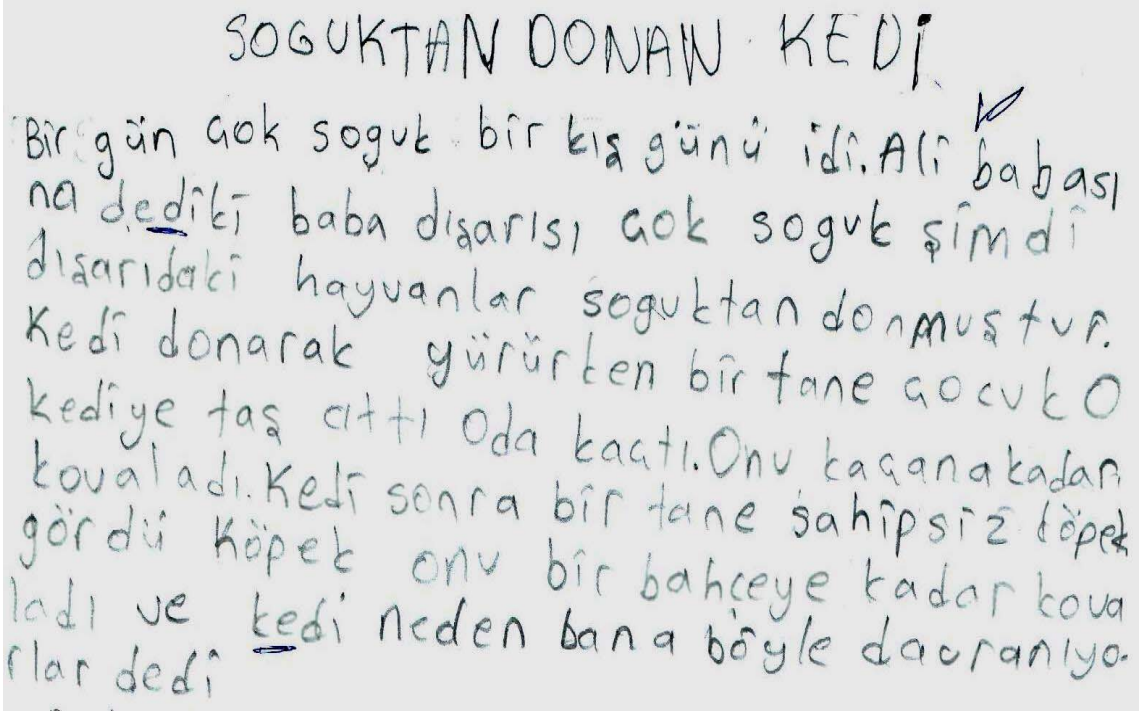 SOGUKTAN DONAN KEDİ
Bir gün çok soguk bir kış günü idi. Ali babası
na dediki baba dışarısı çok soguk şimdi
dışarıdaki hayvanlar soguktan donmuştur.
Kedi donarak yürürken bir tane çocuk O
kediye taş attı Oda kaçtı. Onu kaçana kadar
kovaladı. Kedi sonra bir tane sahipsiz köpek
gördü Köpek onu bir bahçeye kadar kova
ladı ve kedi neden bana böyle davranıyo-
rlar dedi